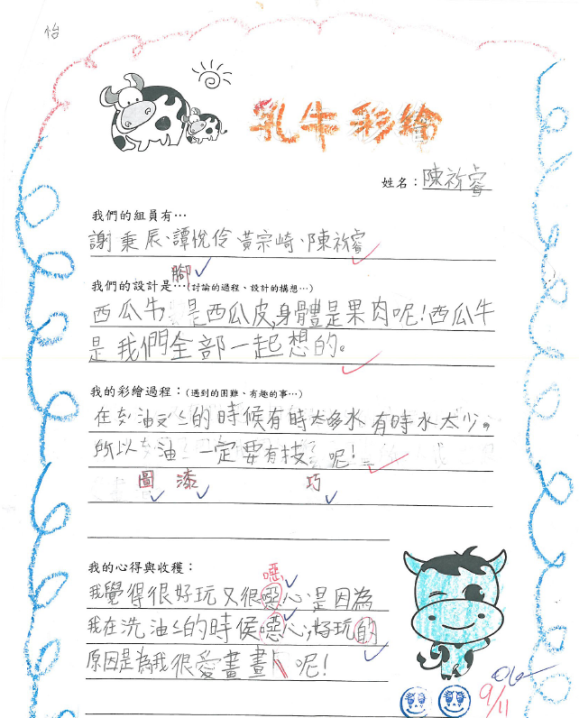 怡
乳牛彩繪
姓名：陳祈睿
我們的組員有…
謝秉辰、譚悅伶黃宗崎、陳祈睿
腳
我們的設計是…(討論的過程、設計的構想…)
西瓜牛，是西瓜皮,身體是果肉呢!西瓜牛
是我們全部一起想的。
我的彩繪過程：(遇到的困難、有趣的事…)
在 油ㄑㄧ的時候有時太多水有時水太少。
所以 油 一定要有技 呢!
圖 漆 巧
我的心得與收穫：
噁
我覺得很好玩又很噁心是因為
我在洗油ㄑㄧ的時候噁心,好玩的
原因是為我很愛畫畫 呢!
9/11